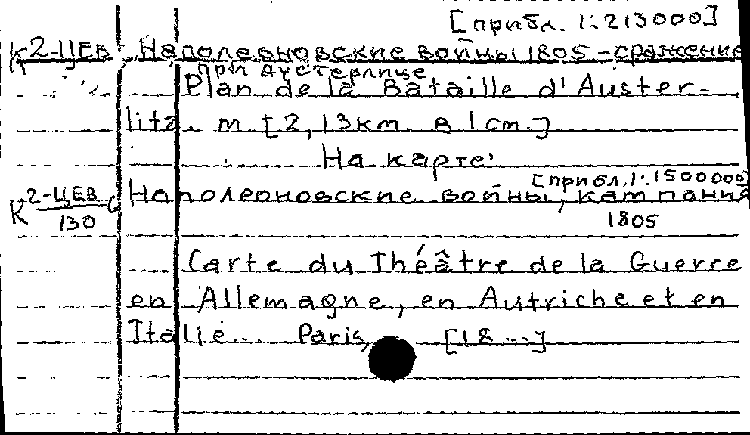 [прибл. 1:213000]
К 2-ЦЕВ Наполеоновские войны 1805 - сражение
при Аустерлице
Plan de la Bataille d'Auster-
litz. м [2,13км в 1см.]
На карте:
[прибл. 1:1500000]
К 2-ЦЕВ Наполеоновские войны, кампания
130 1805
Carte du Théâtre de la Guerre
en Allemagne, en Autriche et en
Italie... Paris, [18...]